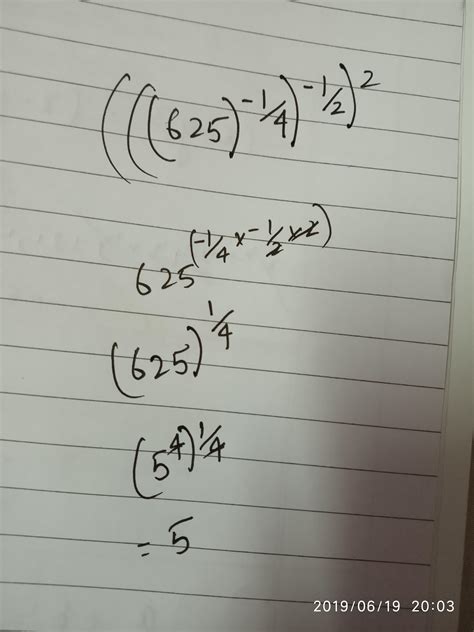 (((625)^{-1/4})^{-1/2})^2
625^{(-1/4 × -1/2 × 2)}
(625)^{1/4}
(5^4)^{1/4}
= 5
2019/06/19 20:03